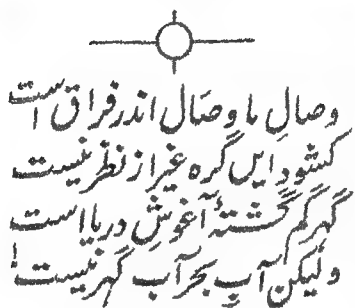 وصالِ ما وصال اندر فراق است
کشودِ ایں گره غیر از نظر نیست
گہر گم گشتۂ آغوشِ دریا است
ولیکن آبِ بحر آبِ گہر نیست!